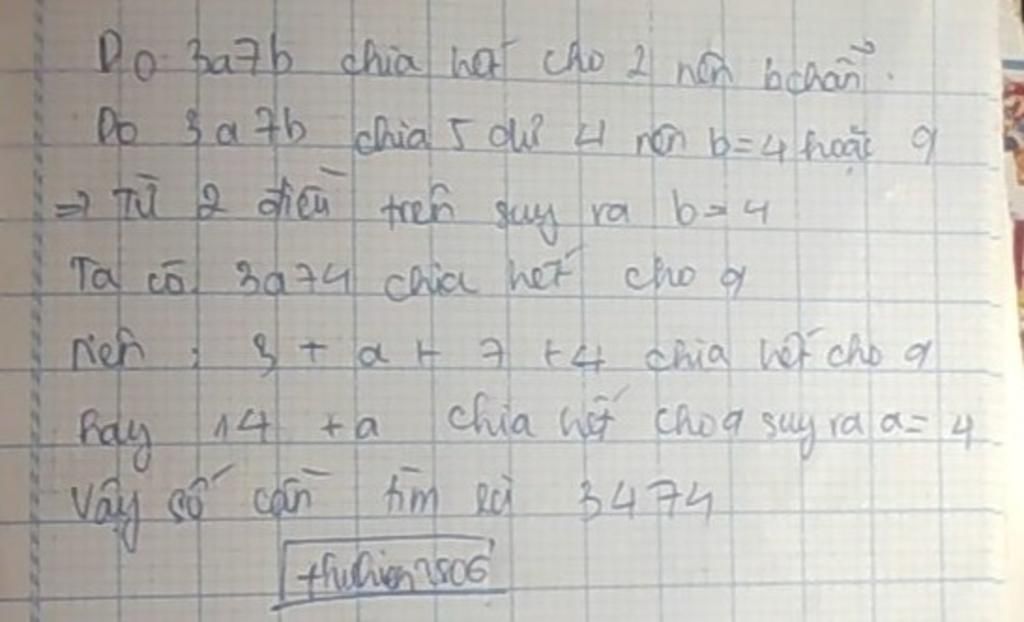 Do 3a7b chia hết cho 2 nên b chẵn.
Do 3a7b chia 5 dư 4 nên b=4 hoặc 9
=> Từ 2 điều trên suy ra b=4
Ta có 3a74 chia hết cho 9
Nên : 3 + a + 7 + 4 chia hết cho 9
hay 14 + a chia hết cho 9 suy ra a = 4
Vậy số cần tìm là 3474